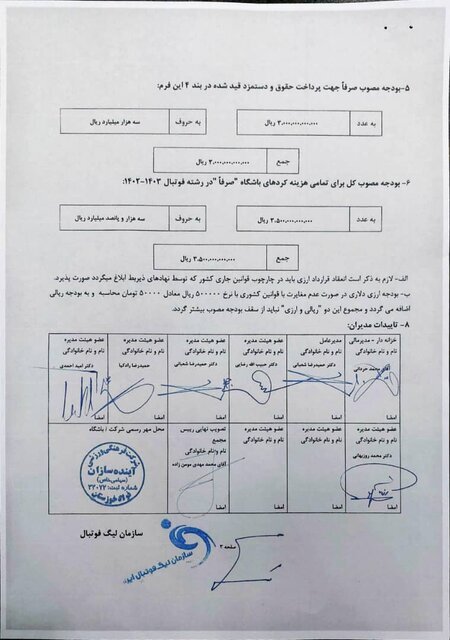 ۵-بودجه مصوب صرفاً جهت پرداخت حقوق و دستمزد قید شده در بند ۴ این فرم:
به عدد ۳.۰۰۰.۰۰۰.۰۰۰.۰۰۰ ریال به حروف سه هزار میلیارد ریال
جمع ۳.۰۰۰.۰۰۰.۰۰۰.۰۰۰ ریال
۶- بودجه مصوب کل برای تمامی هزینه کردهای باشگاه "صرفاً "در رشته فوتبال ۱۴۰۳-۱۴۰۲:
به عدد ۳.۵۰۰.۰۰۰.۰۰۰.۰۰۰ ریال به حروف سه هزار و پانصد میلیارد ریال
جمع ۳.۵۰۰.۰۰۰.۰۰۰.۰۰۰ ریال
الف- لازم به ذکر است انعقاد قرارداد ارزی باید در چارچوب قوانین جاری کشور که توسط نهادهای ذیربط ابلاغ میگردد صورت پذیرد.
ب- بودجه ارزی دلاری در صورت عدم مغایرت با قوانین کشوری با نرخ ۵۰۰۰۰۰ ریال معادل ۵۰۰۰۰ تومان محاسبه و به بودجه ریالی
اضافه می گردد و مجموع این دو "ریالی و ارزی" نباید از سقف بودجه مصوب بیشتر گردد.
۸- تاییدات مدیران:
خزانه دار - مدیرمالی مدیرعامل عضو هیئت مدیره عضو هیئت مدیره عضو هیئت مدیره عضو هیئت مدیره
نام و نام خانوادگی نام و نام خانوادگی نام و نام خانوادگی نام و نام خانوادگی نام و نام خانوادگی نام و نام خانوادگی
آقای محمد دکتر حمیدرضا شعبانی دکتر حبیب الله رضایی دکتر حمیدرضا شعبانی حمیدرضا رادکیا دکتر امید احمدی
امضا امضا امضا امضا امضا امضا
عضو هیئت مدیره عضو هیئت مدیره عضو هیئت مدیره تصویب نهایی رییس مجمع محل مهر رسمی شرکت / باشگاه
نام و نام خانوادگی نام و نام خانوادگی نام و نام خانوادگی نام و نام خانوادگی
دکتر محمد روزبهانی آقای محمد مهدی مومن زاده
امضا امضا امضا امضا
شرکت فرهنگی ورزشی
آینده سازان
(سهامی خاص)
شماره ثبت: ۳۲۰۷۲
فولاد خوزستان
سازمان لیگ فوتبال
صفحه ۳
سازمان لیگ فوتبال ایران